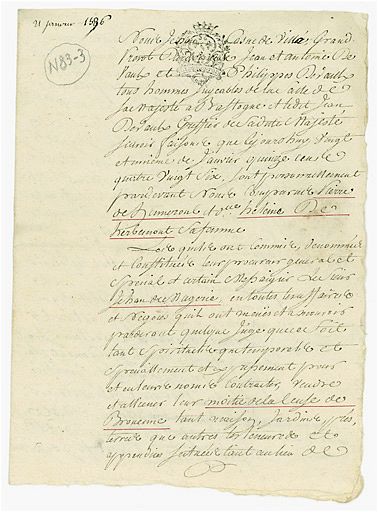 21 janvier 1586
N83-3
Nous Jehan Cosne de Villez Grand
Provot Jean et antoine De
Vaul et Philippes Deraul
tous hommes Jugeables de la ditte
Sa Majesté a Bastogne et edit Jean
Deraul Greffier de Saditte Majesté
scavoir faisons que Cejourd'huy Vingt
et unieme de Janvier quinze cens e
quattre Vingt Six, sont personnellement
pardevant Nous Comparus Pierre
de Hamezon et Dlle heleine De
herbemont Sa femme
Lesquels ont commis, denommé
et Constitué leur procureur general et
Special et certain Messaigier Le Sieur
Jehan de Mageric, en toutes leurs affaires
et Negoces qu'ils ont mouvés et a mouvoir
pardevant quelque Juge que ce soit
tant Spirituelle que temporelle et
Speciallement et Expressement pour
et en leurs noms Contracter, Vendre
et alliener leur moitié de la Cense de
Brouenne tant maison, Jardins, prés,
terres que autres tels heneurs et
appendices Scituée tant au lieu de